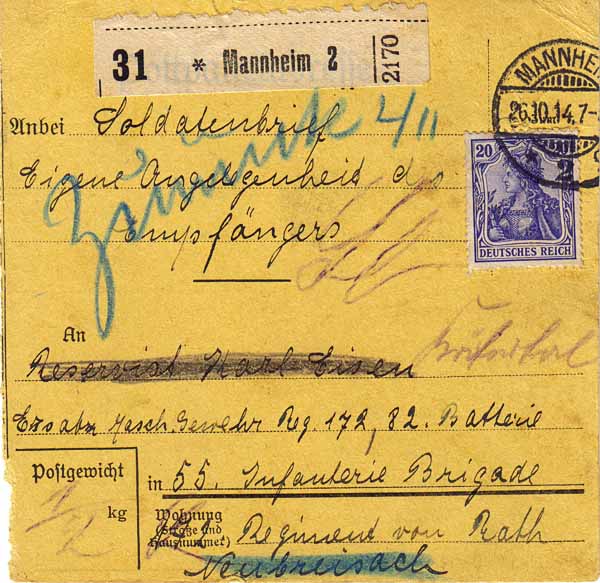 31 * Mannheim 2 2170
MANNHEIM
26.10.14.7-
2
Anbei Soldatenbrief
Zurück 4/11
20
DEUTSCHES REICH
Eigene Angelegenheit des
Empfängers
An
Reservist Karl Eisen
Ersatz Masch. Gewehr Reg. 172, 82. Batterie
Postgewicht
1/2 kg
in 55. Infanterie Brigade
Wohnung
(Straße und
Hausnummer)
Regiment von Rath
Neubreisach